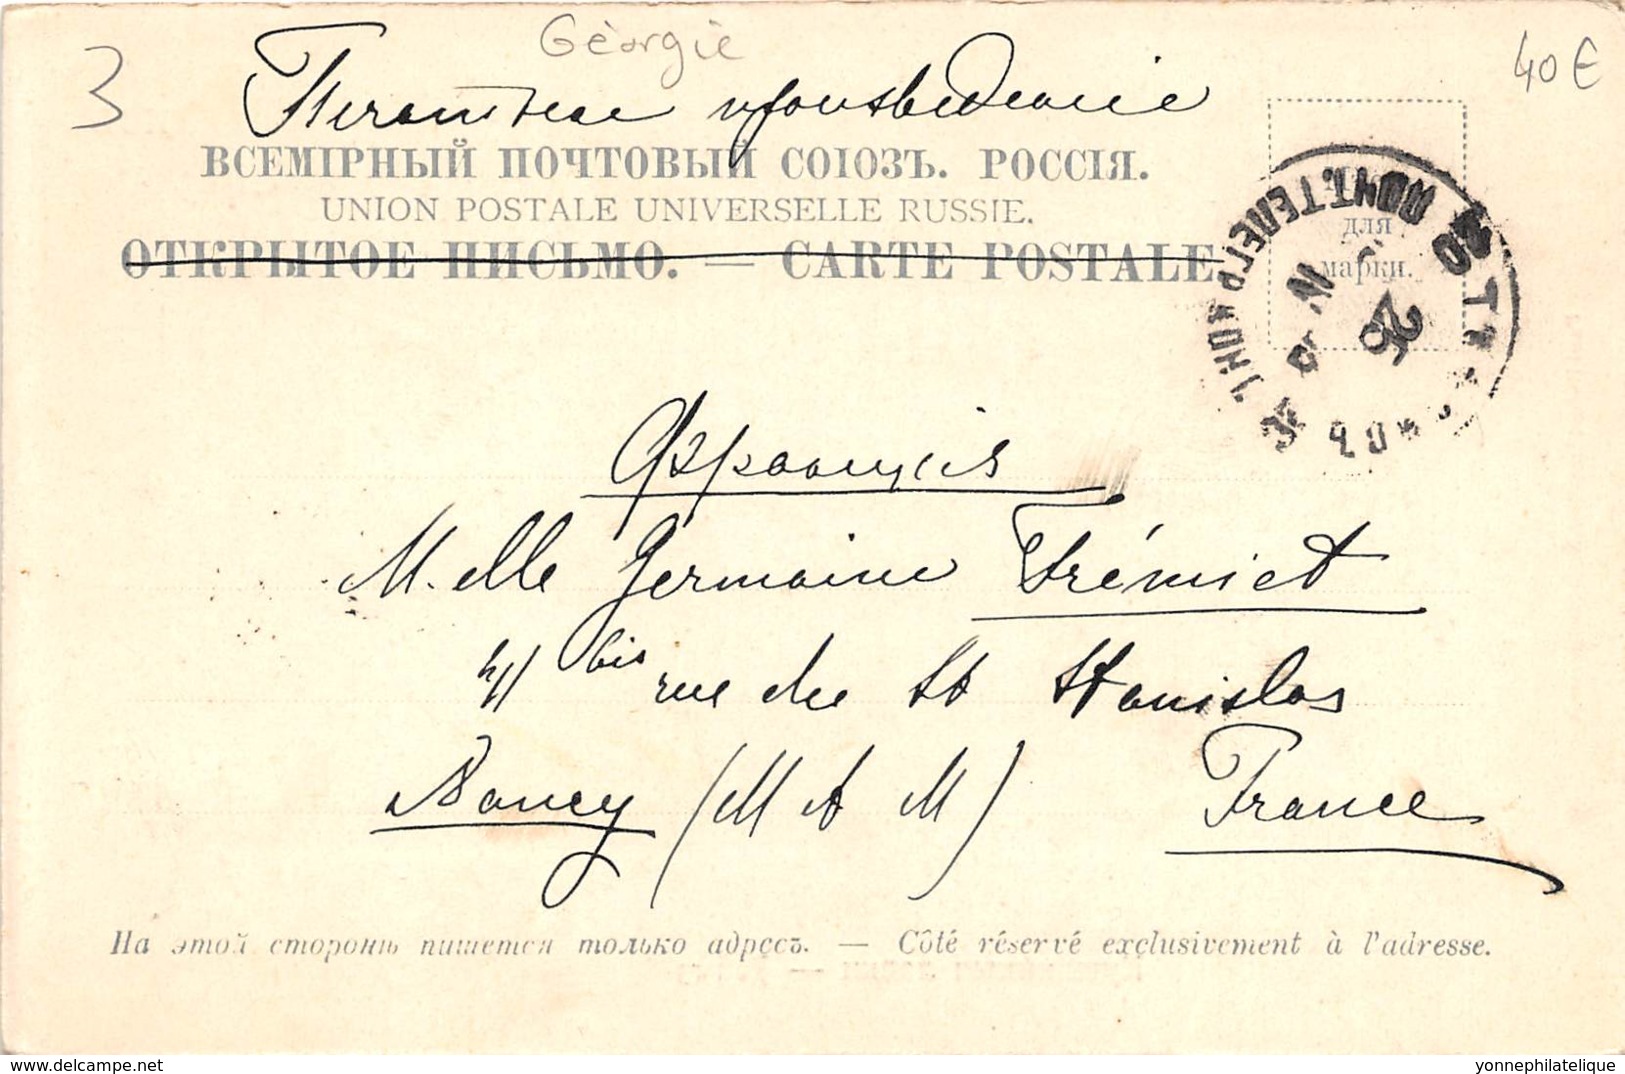 Géorgie
3
40€
Печатное произведение
ВСЕМІРНЫЙ ПОЧТОВЫЙ СОЮЗЪ. РОССІЯ.
UNION POSTALE UNIVERSELLE RUSSIE.
ОТКРЫТОЕ ПИСЬМО. — CARTE POSTALE.
для
марки.
ПОЧТ.ТЕЛЕГР.
25
IV
20
M.elle Germaine Frémiet
41 bis rue du St Stanislas
Nancy (M & M) France
На этой сторонѣ пишется только адресъ. — Côté réservé exclusivement à l'adresse.
delcampe.net
yonnephilatelique